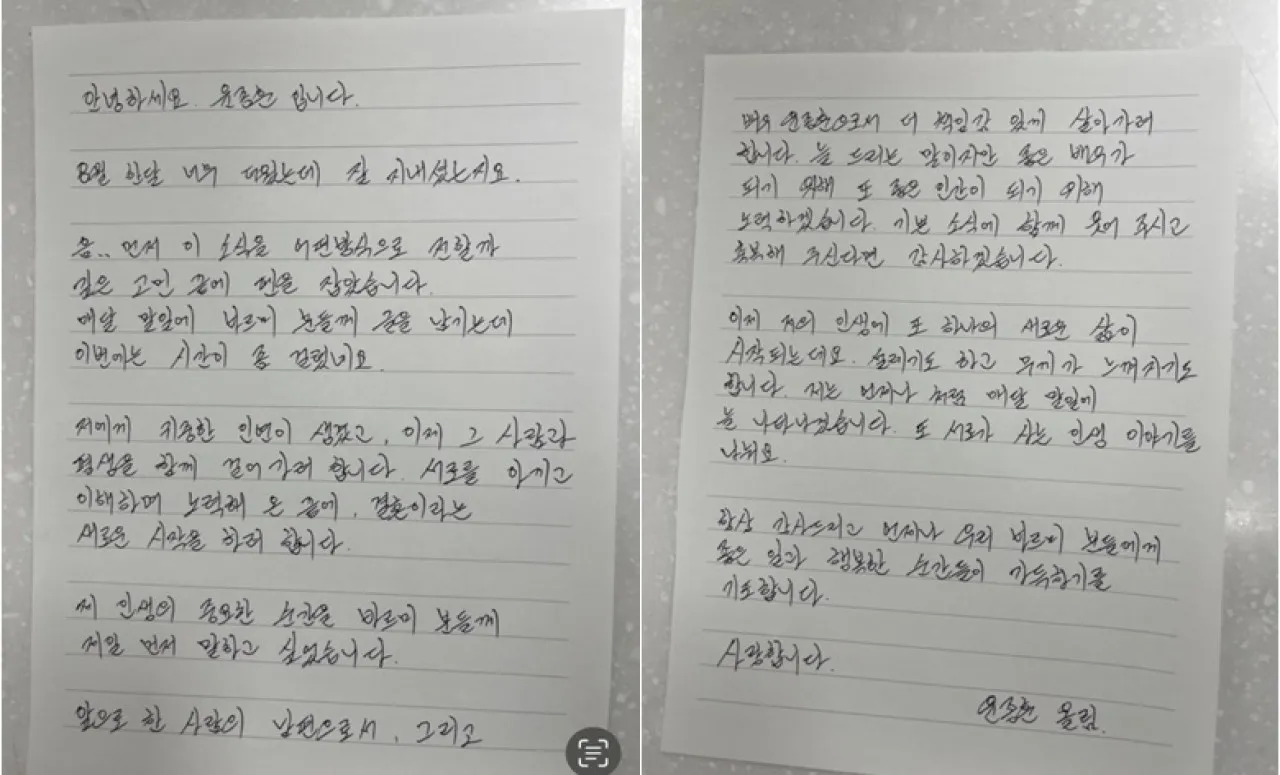 안녕하세요. 윤종훈 입니다.
8월 한달 너무 더웠는데 잘 지내셨는지요.
음.. 먼저 이 소식을 어떤방식으로 전할까
깊은 고민 끝에 펜을 잡았습니다.
매달 말일에 바르미 분들께 글을 남기는데
이번에는 시간이 좀 걸렸네요.
저에게 귀중한 인연이 생겼고, 이제 그 사람과
평생을 함께 걸어가려 합니다. 서로를 아끼고
이해하며 노력해 온 끝에, 결혼이라는
새로운 시작을 하려 합니다.
제 인생의 중요한 순간을 바르미 분들께
제일 먼저 말하고 싶었습니다.
앞으로 한 사람의 남편으로서, 그리고
배우 윤종훈으로서 더 책임감 있게 살아가려
합니다. 늘 드리는 말이지만 좋은 배우가
되기 위해 또 좋은 인간이 되기 위해
노력하겠습니다. 기쁜 소식에 함께 웃어 주시고
축복해 주신다면 감사하겠습니다.
이제 저의 인생에 또 하나의 새로운 삶이
시작되는데요. 설레기도 하고 무게가 느껴지기도
합니다. 저는 언제나 처럼 매달 말일에
늘 나타나겠습니다. 또 서로가 사는 인생 이야기를
나눠요.
항상 감사드리고 언제나 우리 바르미 분들에게
좋은 일과 행복한 순간들이 가득하기를
기도합니다.
사랑합니다.
윤종훈 올림.